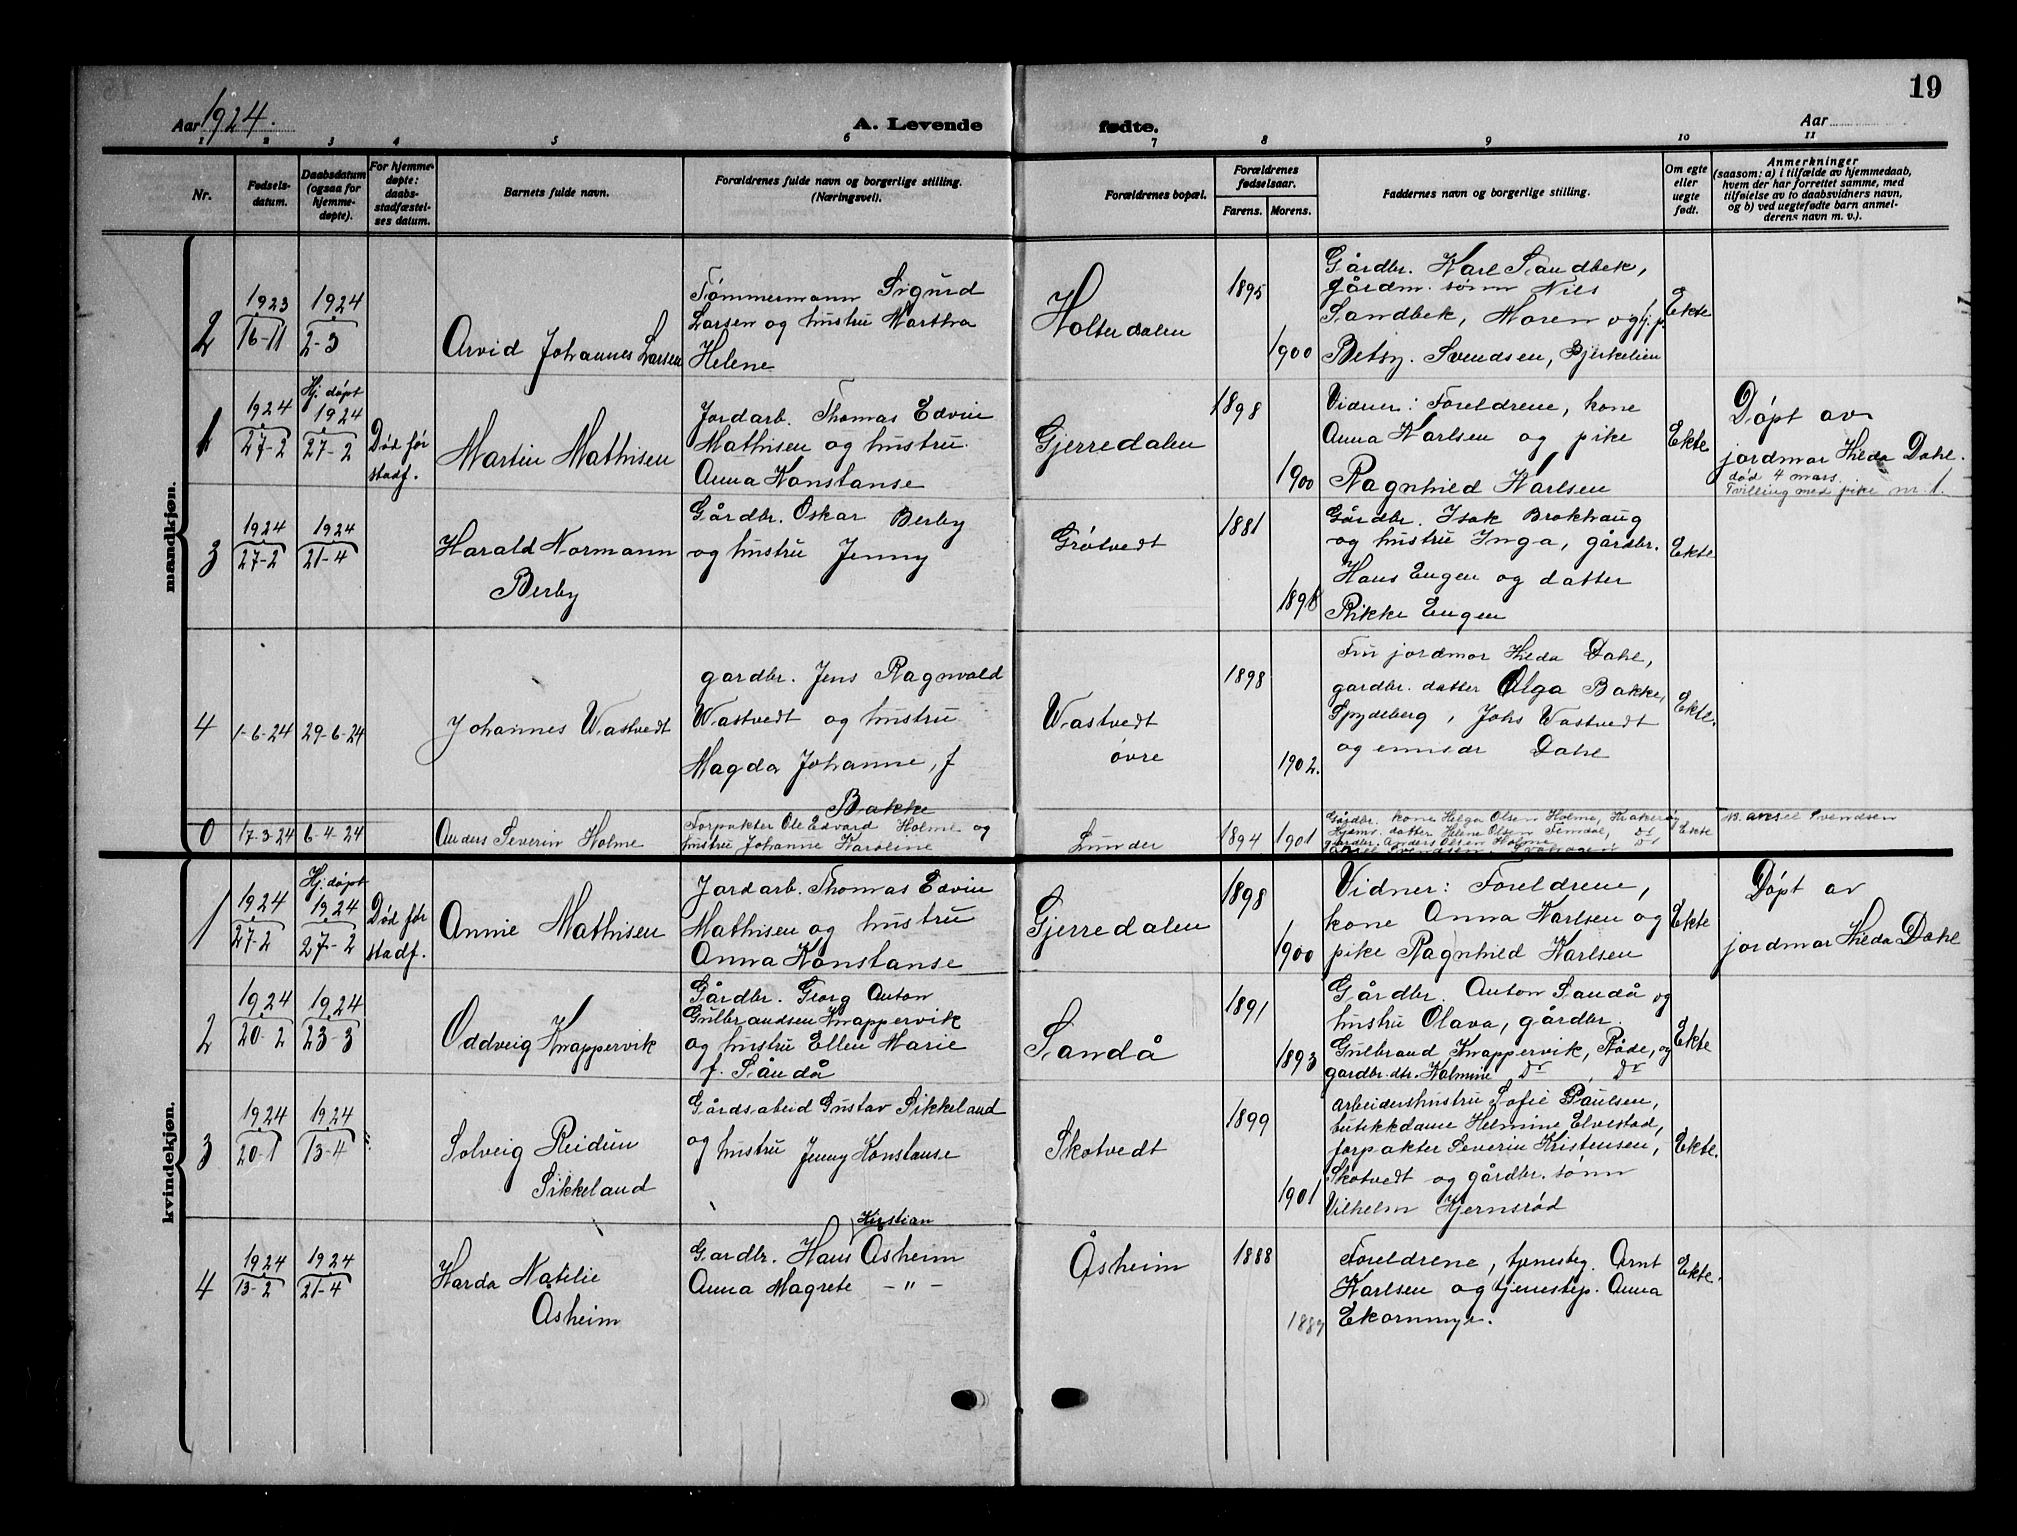 19
Aar 1924.
A. Levende fødte.
Aar
1 2 3 4 5 6 7 8 9 10 11
Nr.
Fødsels-
datum.
Daabsdatum
(ogsaa for
hjemme-
døpte).
For hjemme-
døpte:
daabs-
stadfæstel-
ses datum.
Barnets fulde navn.
Forældrenes fulde navn og borgerlige stilling.
(Næringsvei).
Forældrenes bopæl.
Forældrenes
fødselsaar.
Farens. Morens.
Faddernes navn og borgerlige stilling.
Om egte
eller
uegte
født.
Anmerkninger
(saasom: a) i tilfælde av hjemmedaab,
hvem der har forrettet samme, med
tilføielse av to daabsvidners navn,
og b) ved uegtefødte barn anmel-
derens navn m. v.).
mandkjøn.
2
1923
16-11
1924
2-3
Arvid Johannes Larsen
Tømmermann Sigurd
Larsen og hustru Martha
Helene
Holterdalen
1895
1900
Gårdbr. Karl Sandbek,
gårdm. sønn Nils
Sandbek, Maren og
Betsy Svendsen, Bjerkelien
Ekte
1
1924
27-2
Hj. døpt
1924
27-2
Død før
stadf.
Martin Mathisen
Jordarb. Thomas Edvin
Mathisen og hustru
Anna Konstanse
Gjerredalen
1898
1900
Vidner: Foreldrene, kone
Anna Karlsen og pike
Ragnhild Karlsen
Ekte
Døpt av
jordmor Hilda Dahl.
død 4 mars.
Tvilling med pike nr. 1.
3
1924
27-2
1924
21-4
Harald Normann
Berby
Gårdbr. Oskar Berby
og hustru Jenny
Grötvedt
1881
1898
Gårdbr. Isak Brekhaug
og hustru Inga, gårdbr.
Hans Engen og datter
Rikke Engen
Ekte
4
1-6-24
29-6-24
Johannes Wastvedt
gardbr. Jens Ragnvald
Wastvedt og hustru
Magda Johanne, f
Bakke
Wastvedt
øvre
1898
1902.
Fru jordmor Hilda Dahl,
gardbr. datter Olga Bakke,
Spydeberg, Johs Wastvedt
og Dahl
Ekte.
0
17-3-24
6-4-24
Anders Severin Holme
Forpakter Ole Edvard Holme og
hustru Johanne Karoline
Lunder
1894
1901
Gårdbr. kone Helga Olsen Holme,
datter Helene Olsen
gårdbr. Anders Olsen Holme Do
Ekte
Svendsen
kvindekjøn.
1
1924
27-2
Hj. døpt
1924
27-2
Død før
stadf.
Annie Mathisen
Jordarb. Thomas Edvin
Mathisen og hustru
Anna Konstanse
Gjerredalen
1898
1900
Vidner: Foreldrene,
kone Anna Karlsen og
pike Ragnhild Karlsen
Ekte
Døpt av
jordmor Hilda Dahl
2
1924
20-2
1924
23-3
Oddveig Knappervik
Gårdbr. Georg Anton
Gulbrandsen Knappervik
og hustru Ellen Marie
f. Sandå
Sandå
1891
1893
Gårdbr. Anton Sandå og
hustru Olava, gårdbr.
Gulbrand Knappervik, Råde, og
gardbr. dtr. Kalmine Do, Do
Ekte
3
1924
20-1
1924
13-4
Solveig Reidun
Sikkeland
Gårdsarbeid Gustav Sikkeland
og hustru Jenny Konstanse
Skotvedt
1899
1901
Arbeiderhustru Sofie Paulsen,
butikkdame Helmine Elvestad,
forpakter Severin Kristensen,
Skotvedt og gårdbr. sønn
Vilhelm Hjernsrød
Ekte.
4
1924
13-2
1924
21-4
Harda Natilie
Åsheim
Kristian
Gardbr. Hans Åsheim
Anna Magrete — " —
Åsheim
1888
1887
Foreldrene, tjenestg. Arnt
Karlsen og tjenestep. Anna
Ekornmyr.
Ekte.